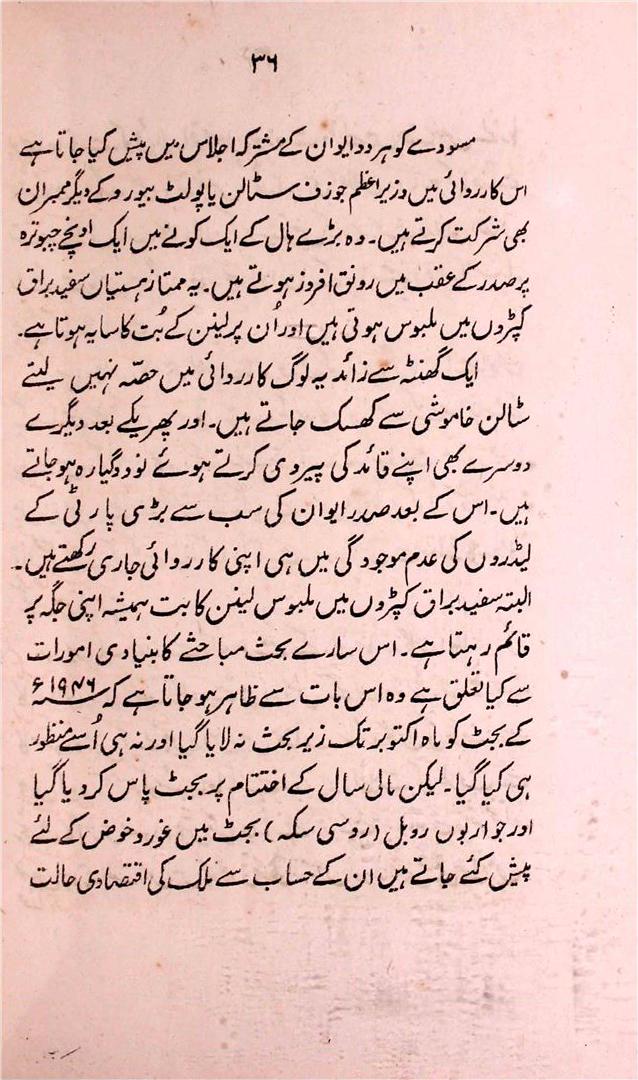 ۳۶
مسودے کو ہر دو ایوان کے مشترکہ اجلاس میں پیش کیا جاتا ہے
اس کارروائی میں وزیراعظم جوزف سٹالن یا پولٹ بیورو کے دیگر ممبران
بھی شرکت کرتے ہیں۔ وہ بڑے ہال کے ایک کونے میں ایک اونچے چبوترہ
پر صدر کے عقب میں رونق افروز ہوتے ہیں۔ یہ ممتاز ہستیاں سفید براق
کپڑوں میں ملبوس ہوتی ہیں اور اُن پر لینن کے بُت کا سایہ ہوتا ہے۔
ایک گھنٹہ سے زائد یہ لوگ کارروائی میں حصّہ نہیں لیتے
سٹالن خاموشی سے کھسک جاتے ہیں۔ اور پھر یکے بعد دیگرے
دوسرے بھی اپنے قائد کی پیروی کرتے ہوئے نو دو گیارہ ہو جاتے
ہیں۔ اس کے بعد صدر ایوان کی سب سے بڑی پارٹی کے
لیڈروں کی عدم موجودگی میں ہی اپنی کارروائی جاری رکھتے ہیں۔
البتہ سفید براق کپڑوں میں ملبوس لینن کا بت ہمیشہ اپنی جگہ پر
قائم رہتا ہے۔ اس سارے بحث مباحثے کا بنیادی امورات
سے کیا تعلق ہے وہ اس بات سے ظاہر ہو جاتا ہے کہ ۱۹۴۶ء
کے بجٹ کو ماہ اکتوبر تک زیر بحث نہ لایا گیا اور نہ ہی اُسے منظور
ہی کیا گیا۔ لیکن مالی سال کے اختتام پر بجٹ پاس کر دیا گیا
اور جو اربوں روبل (روسی سکہ) بجٹ میں غور و خوض کے لئے
پیش کئے جاتے ہیں ان کے حساب سے ملک کی اقتصادی حالت